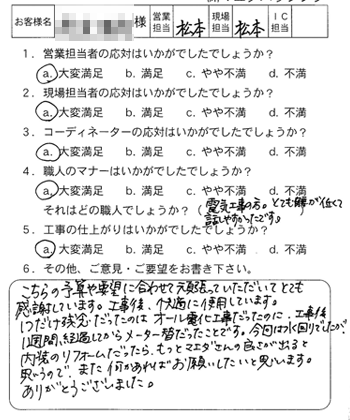 お客様名 様 営業担当 松本 現場担当 松本 ＩＣ担当
１．営業担当者の応対はいかがでしたでしょうか？
a. 大変満足 b. 満足 c. やや不満 d. 不満
２．現場担当者の応対はいかがでしたでしょうか？
a. 大変満足 b. 満足 c. やや不満 d. 不満
３．コーディネーターの応対はいかがでしたでしょうか？
a. 大変満足 b. 満足 c. やや不満 d. 不満
４．職人のマナーはいかがでしたでしょうか？
a. 大変満足 b. 満足 c. やや不満 d. 不満
それはどの職人でしょうか？（電気工事の方。とても腰が低くて
話しやすかったです。）
５．工事の仕上がりはいかがでしたでしょうか？
a. 大変満足 b. 満足 c. やや不満 d. 不満
６．その他、ご意見・ご要望をお書き下さい。
こちらの予算や要望に合わせて頑張っていただいてとても
感謝しています。工事後、快適に使用しています。
1つだけ残念だったのは オール電化工事だったのに、工事後
1週間、経過してからメーター替だったことです。今回は水回りでしたが、
内装のリフォームだったら、もっとマエダさんの良さが出ると
思うので、また何かあればお願いしたいと思います。
ありがとうございました。